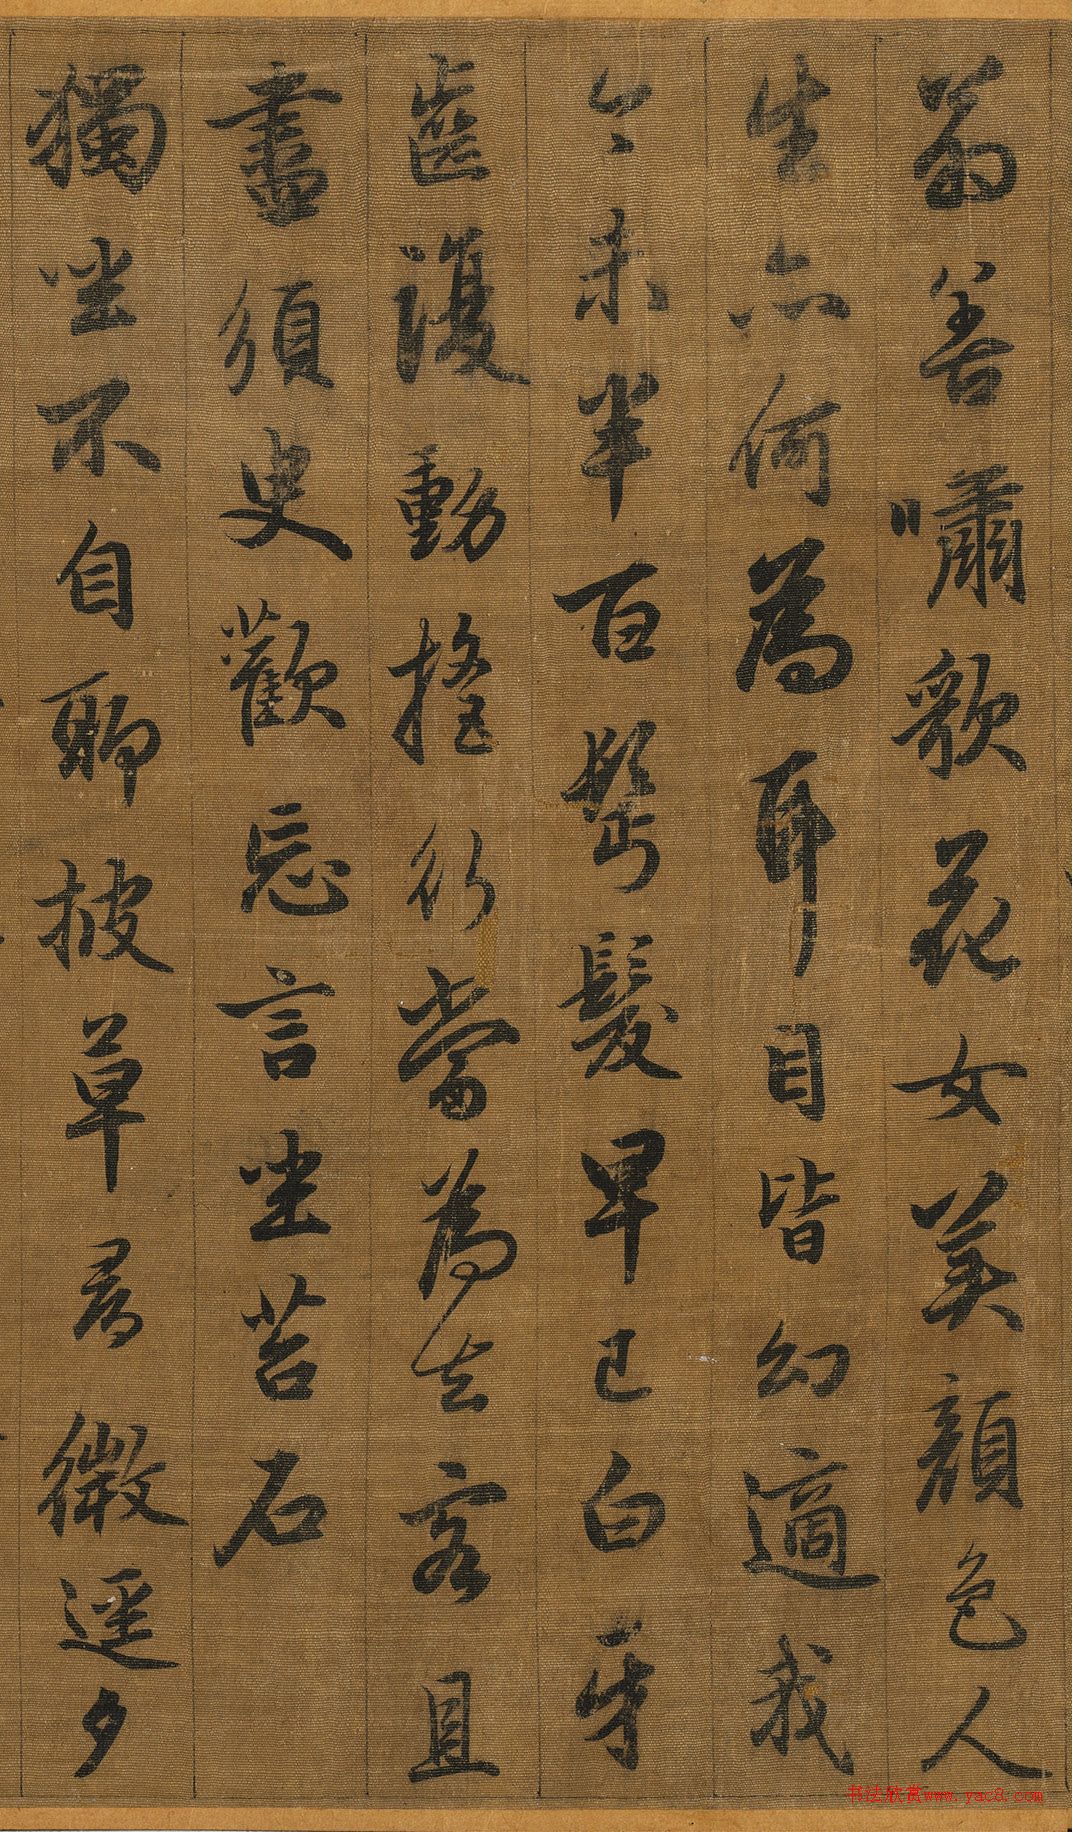 翁善嘯歌花女美顏色人
生亦何為耳目皆幻適我
今未半百鬢髮早已白牙
齒復動搖行當為去客且
盡須臾歡忘言坐苔石
獨坐不自聊披草尋微逕夕
书法欣赏www.yac8.com